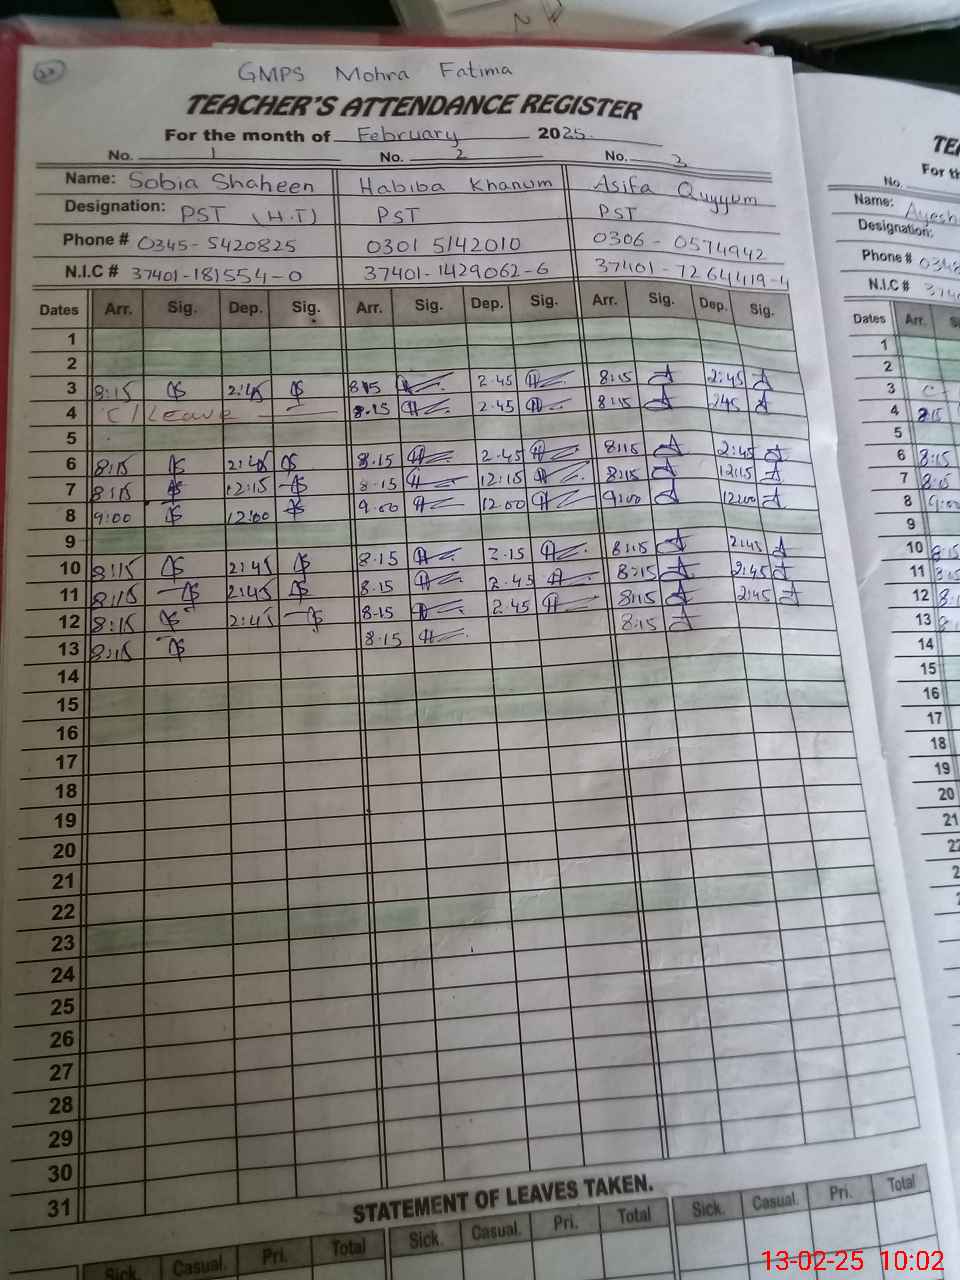 GMPS Mohra Fatima
TEACHER'S ATTENDANCE REGISTER
For the month of February 2025
No. 1 No. 2 No. 3
Name: Sobia Shaheen Habiba Khanum Asifa Quyyum
Designation: PST (H.T) PST PST
Phone # 0345-5420825 0301 5142010 0306-0574942
N.I.C # 37401-181554-0 37401-1429062-6 37401-7264419-4
Dates Arr. Sig. Dep. Sig. Arr. Sig. Dep. Sig. Arr. Sig. Dep. Sig.
1
2
3 8:15 2:45 8.15 2.45 8:15 2:45
4 C/Leave 8.15 2.45 8:15 245
5
6 8:15 2:45 8.15 2.45 8:15 2:45
7 8:15 12:15 8.15 12:15 8:15 12:15
8 9:00 12:00 9.00 12.00 9:00 12:00
9
10 8:15 2:45 8.15 2.15 8:15 2:45
11 8:15 2:45 8.15 2.45 8:15 2:45
12 8:15 2:45 8.15 2.45 8:15 2:45
13 8:15 8.15 8:15
14
15
16
17
18
19
20
21
22
23
24
25
26
27
28
29
30
31
STATEMENT OF LEAVES TAKEN.
Sick Casual. Pri. Total Sick. Casual. Pri. Total Sick. Casual. Pri. Total
For th
No.
Name: Ayesh
Designation:
Phone # 0348
N.I.C #
Dates Arr.
1
2
3 C
4 8:15
5
6 8:15
7 8:15
8 9:00
9
10
11
12
13
14
15
16
17
18
19
20
21
13-02-25 10:02